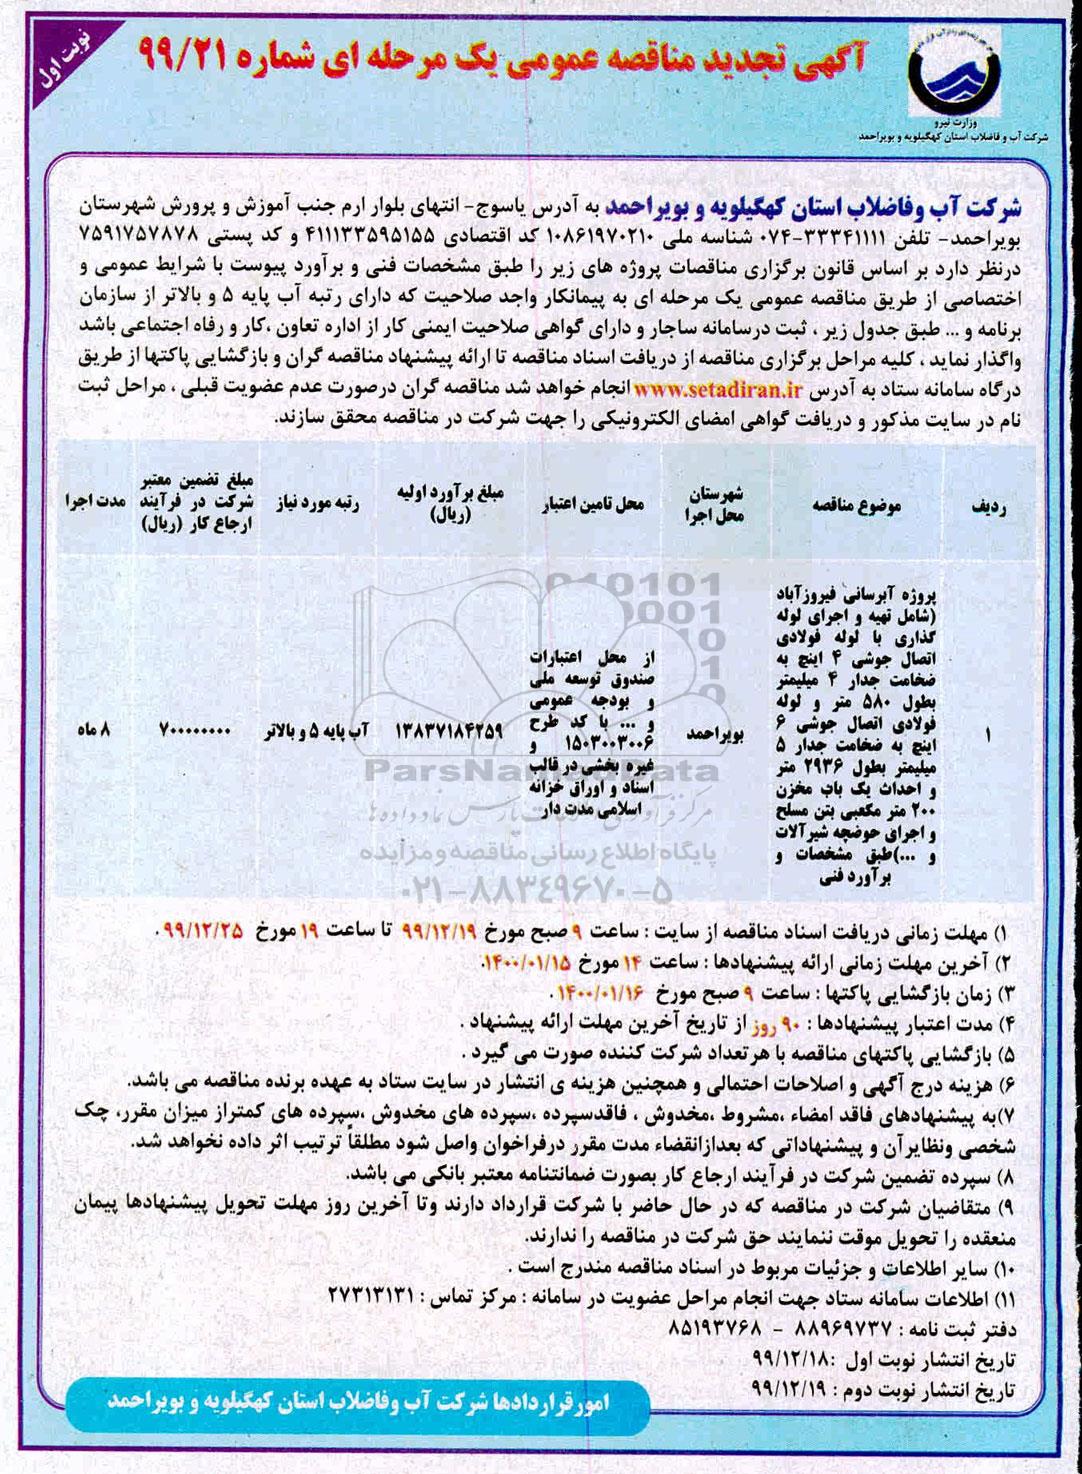 نوبت اول
آگهی تجدید مناقصه عمومی یک مرحله ای شماره ۹۹/۲۱
وزارت نیرو
شرکت آب و فاضلاب استان کهگیلویه و بویراحمد
شرکت آب وفاضلاب استان کهگیلویه و بویراحمد به آدرس یاسوج- انتهای بلوار ارم جنب آموزش و پرورش شهرستان
بویراحمد- تلفن ۳۳۳۴۱۱۱۱-۰۷۴ شناسه ملی ۱۰۸۶۱۹۷۰۲۱۰ کد اقتصادی ۴۱۱۱۳۳۵۹۵۱۵۵ و کد پستی ۷۵۹۱۷۵۷۸۷۸
درنظر دارد بر اساس قانون برگزاری مناقصات پروژه های زیر را طبق مشخصات فنی و برآورد پیوست با شرایط عمومی و
اختصاصی از طریق مناقصه عمومی یک مرحله ای به پیمانکار واجد صلاحیت که دارای رتبه آب پایه ۵ و بالاتر از سازمان
برنامه و ... طبق جدول زیر ، ثبت درسامانه ساجار و دارای گواهی صلاحیت ایمنی کار از اداره تعاون ،کار و رفاه اجتماعی باشد
واگذار نماید ، کلیه مراحل برگزاری مناقصه از دریافت اسناد مناقصه تا ارائه پیشنهاد مناقصه گران و بازگشایی پاکتها از طریق
درگاه سامانه ستاد به آدرس www.setadiran.ir انجام خواهد شد مناقصه گران درصورت عدم عضویت قبلی ، مراحل ثبت
نام در سایت مذکور و دریافت گواهی امضای الکترونیکی را جهت شرکت در مناقصه محقق سازند.
ردیف
موضوع مناقصه
شهرستان
محل اجرا
محل تامین اعتبار
مبلغ برآورد اولیه
(ریال)
رتبه مورد نیاز
مبلغ تضمین معتبر
شرکت در فرآیند
ارجاع کار (ریال)
مدت اجرا
۱
پروژه آبرسانی فیروزآباد
(شامل تهیه و اجرای لوله
گذاری با لوله فولادی
اتصال جوشی ۴ اینچ به
ضخامت جدار ۴ میلیمتر
بطول ۵۸۰ متر و لوله
فولادی اتصال جوشی ۶
اینچ به ضخامت جدار ۵
میلیمتر بطول ۲۹۳۶ متر
و احداث یک باب مخزن
۲۰۰ متر مکعبی بتن مسلح
و اجرای حوضچه شیرآلات
و ...)طبق مشخصات و
برآورد فنی
بویراحمد
از محل اعتبارات
صندوق توسعه ملی
و بودجه عمومی
و ... با کد طرح
۱۵۰۳۰۰۳۰۰۶ و
غیره بخشی در قالب
اسناد و اوراق خزانه
اسلامی مدت دار
۱۳۸۳۷۱۸۴۲۵۹
آب پایه ۵ و بالاتر
۷۰۰۰۰۰۰۰۰
۸ ماه
ParsNamadData
پایگاه اطلاع رسانی مناقصه و مزایده
۰۲۱-۸۸۳۴۹۶۷۰-۵
۱) مهلت زمانی دریافت اسناد مناقصه از سایت : ساعت ۹ صبح مورخ ۹۹/۱۲/۱۹ تا ساعت ۱۹ مورخ ۹۹/۱۲/۲۵ .
۲) آخرین مهلت زمانی ارائه پیشنهادها : ساعت ۱۴ مورخ ۱۴۰۰/۰۱/۱۵.
۳) زمان بازگشایی پاکتها : ساعت ۹ صبح مورخ ۱۴۰۰/۰۱/۱۶ .
۴) مدت اعتبار پیشنهادها : ۹۰ روز از تاریخ آخرین مهلت ارائه پیشنهاد .
۵) بازگشایی پاکتهای مناقصه با هرتعداد شرکت کننده صورت می گیرد .
۶) هزینه درج آگهی و اصلاحات احتمالی و همچنین هزینه ی انتشار در سایت ستاد به عهده برنده مناقصه می باشد.
۷)به پیشنهادهای فاقد امضاء ،مشروط ،مخدوش ، فاقدسپرده ،سپرده های مخدوش ،سپرده های کمتراز میزان مقرر، چک
شخصی ونظایرآن و پیشنهاداتی که بعدازانقضاء مدت مقرر درفراخوان واصل شود مطلقاً ترتیب اثر داده نخواهد شد.
۸) سپرده تضمین شرکت در فرآیند ارجاع کار بصورت ضمانتنامه معتبر بانکی می باشد.
۹) متقاضیان شرکت در مناقصه که در حال حاضر با شرکت قرارداد دارند وتا آخرین روز مهلت تحویل پیشنهادها پیمان
منعقده را تحویل موقت ننمایند حق شرکت در مناقصه را ندارند.
۱۰) سایر اطلاعات و جزئیات مربوط در اسناد مناقصه مندرج است .
۱۱) اطلاعات سامانه ستاد جهت انجام مراحل عضویت در سامانه : مرکز تماس : ۲۷۳۱۳۱۳۱
دفتر ثبت نامه : ۸۸۹۶۹۷۳۷ - ۸۵۱۹۳۷۶۸
تاریخ انتشار نوبت اول :۹۹/۱۲/۱۸
تاریخ انتشار نوبت دوم : ۹۹/۱۲/۱۹
امور قراردادها شرکت آب وفاضلاب استان کهگیلویه و بویراحمد